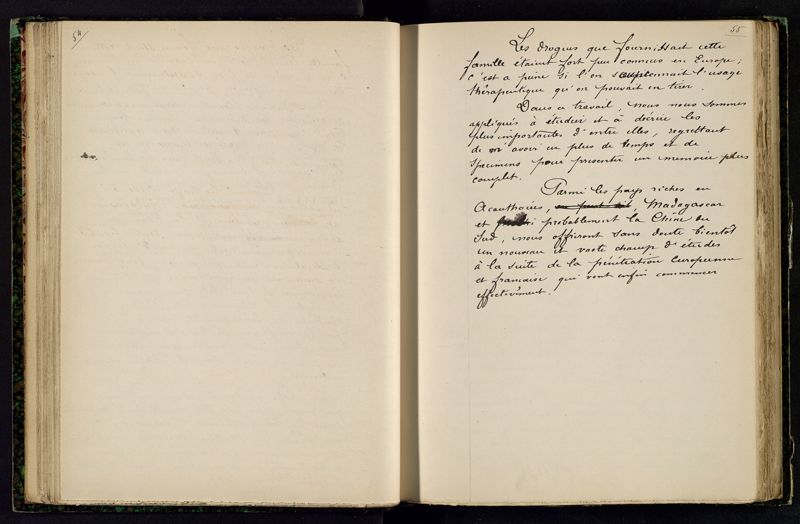 54
55
Les drogues que fournissait cette
famille étaient fort peu connues en Europe ;
c'est a peine si l'on soupçonnait l'usage
thérapeutique qu'on pouvait en tirer.
Dans ce travail, nous nous sommes
appliqués à étudier et à décrire les
plus importantes d'entre elles, regrettant
de n'avoir eu plus de temps et de
specimens pour presenter un memoire plus
complet.
Parmi les pays riches en
Acanthacées, Madagascar
et probablement la Chine du
Sud, nous offriront sans doute bientôt
un nouveau et vaste champ d'études
à la suite de la pénétration Européenne
et française qui vont enfin commencer
effectivement.